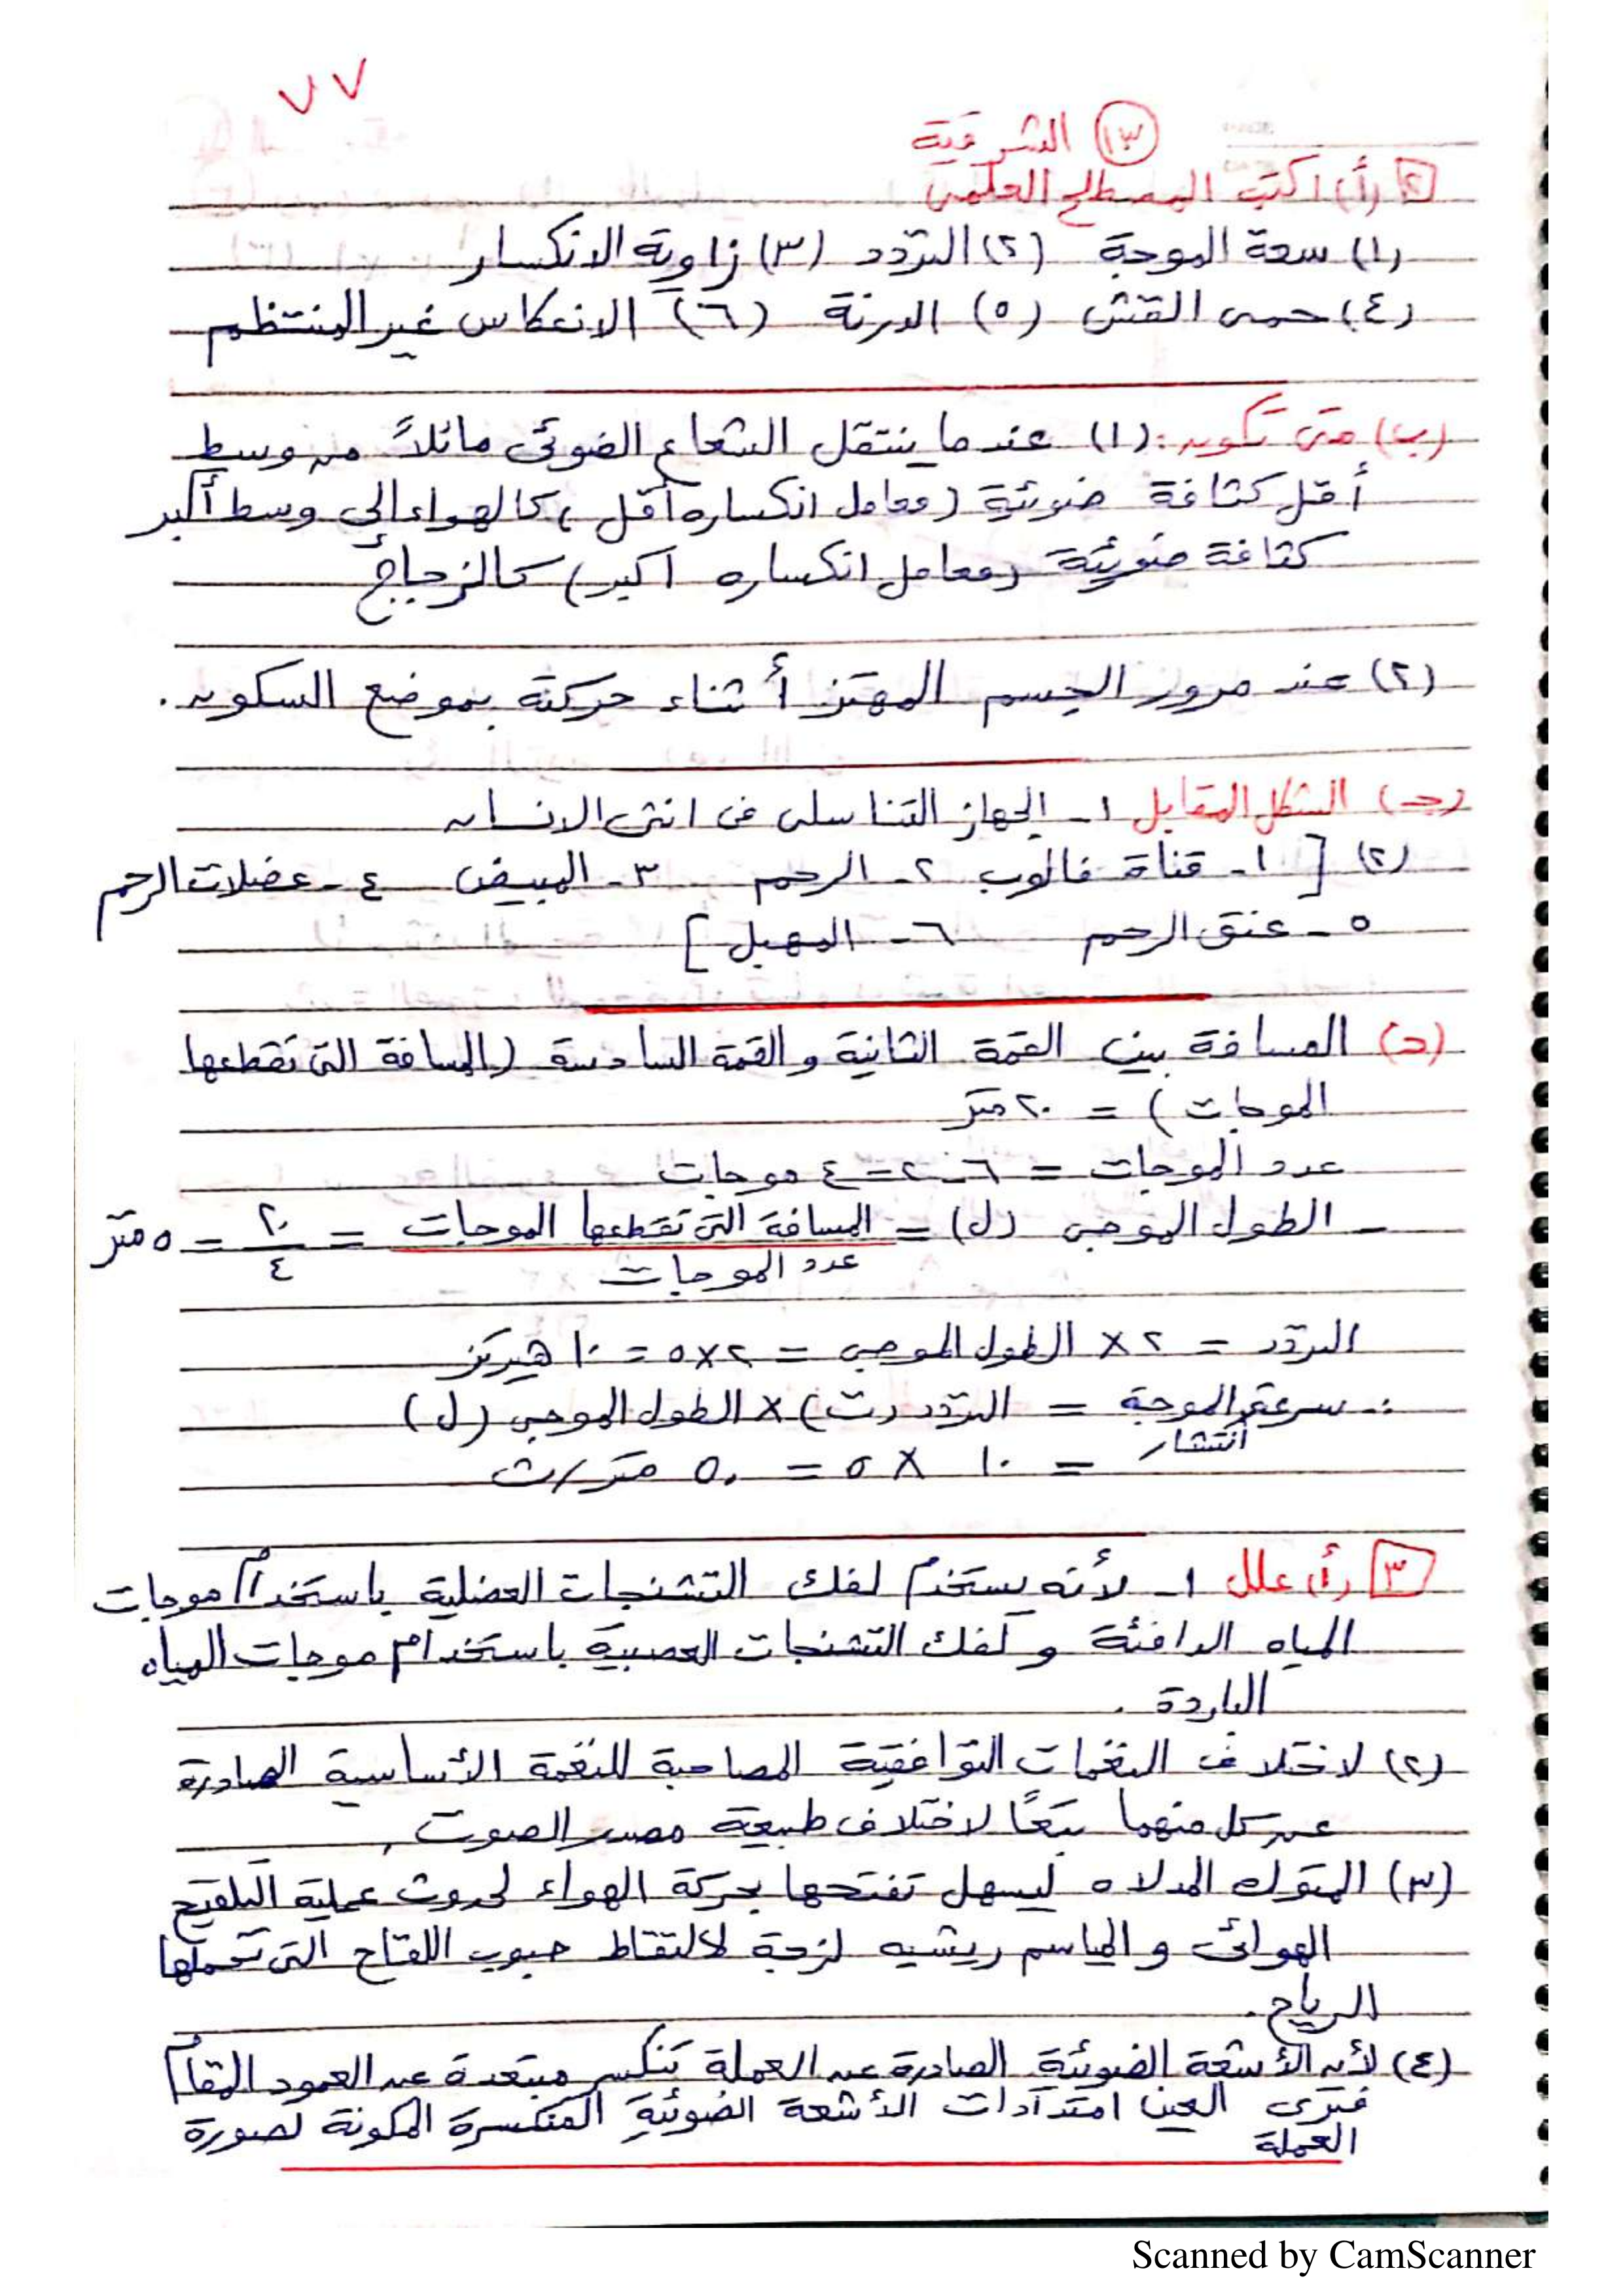 ٧٧
(١٣) الشرقية
[٢] (أ) اكتب المصطلح العلمى
(١) سعة الموجة (٢) التردد (٣) زاوية الانكسار
(٤) حمى القش (٥) الدرنة (٦) الانعكاس غير المنتظم
(ب) متى تكون: (١) عندما ينتقل الشعاع الضوئى مائلاً من وسط
أقل كثافة ضوئية (معامل انكساره أقل) كالهواء إلى وسط أكبر
كثافة ضوئية (معامل انكساره أكبر) كالزجاج
(٢) عند مرور الجسم المهتز أثناء حركتة بموضع السكون.
(جـ) الشكل المقابل ١- الجهاز التناسلى فى انثى الانسان
(٢) [ ١- قناة فالوب ٢- الرحم ٣- المبيض ٤- عضلات الرحم
٥- عنق الرحم ٦- المهبل ]
(د) المسافة بين القمة الثانية والقمة السادسة (المسافة التى تقطعها
الموجات) = ٢٠ متر
عدد الموجات = ٦-٢=٤ موجات
- الطول الموجى (ل) = المسافة التى تقطعها الموجات = ٢٠ = ٥ متر
عدد الموجات ٤
التردد = ٢ × الطول الموجى = ٢×٥ = ١٠ هيرتز
∴ سرعة الموجة = التردد (ت) × الطول الموجى (ل)
انتشار
= ١٠ × ٥ = ٥٠ متر/ث
[٣] (أ) علل ١- لأنه يستخدم لفك التشنجات العضلية باستخدام موجات
المياه الدافئة و لفك التشنجات العصبية باستخدام موجات المياه
الباردة.
(٢) لاختلاف النغمات التوافقية المصاحبة للنغمة الأساسية الصادرة
عن كل منهما تبعًا لاختلاف طبيعة مصدر الصوت.
(٣) المتوك المدلاه ليسهل تفتحها بحركة الهواء لحدوث عملية التلقيح
الهوائى و المياسم ريشيه لزجة لالتقاط حبوب اللقاح التى تحملها
الرياح.
(٤) لأن الأشعة الضوئية الصادرة عن العملة تنكسر مبتعدة عن العمود المقام
فترى العين امتدادات الأشعة الضوئية المنكسرة المكونة لصورة
العملة
Scanned by CamScanner